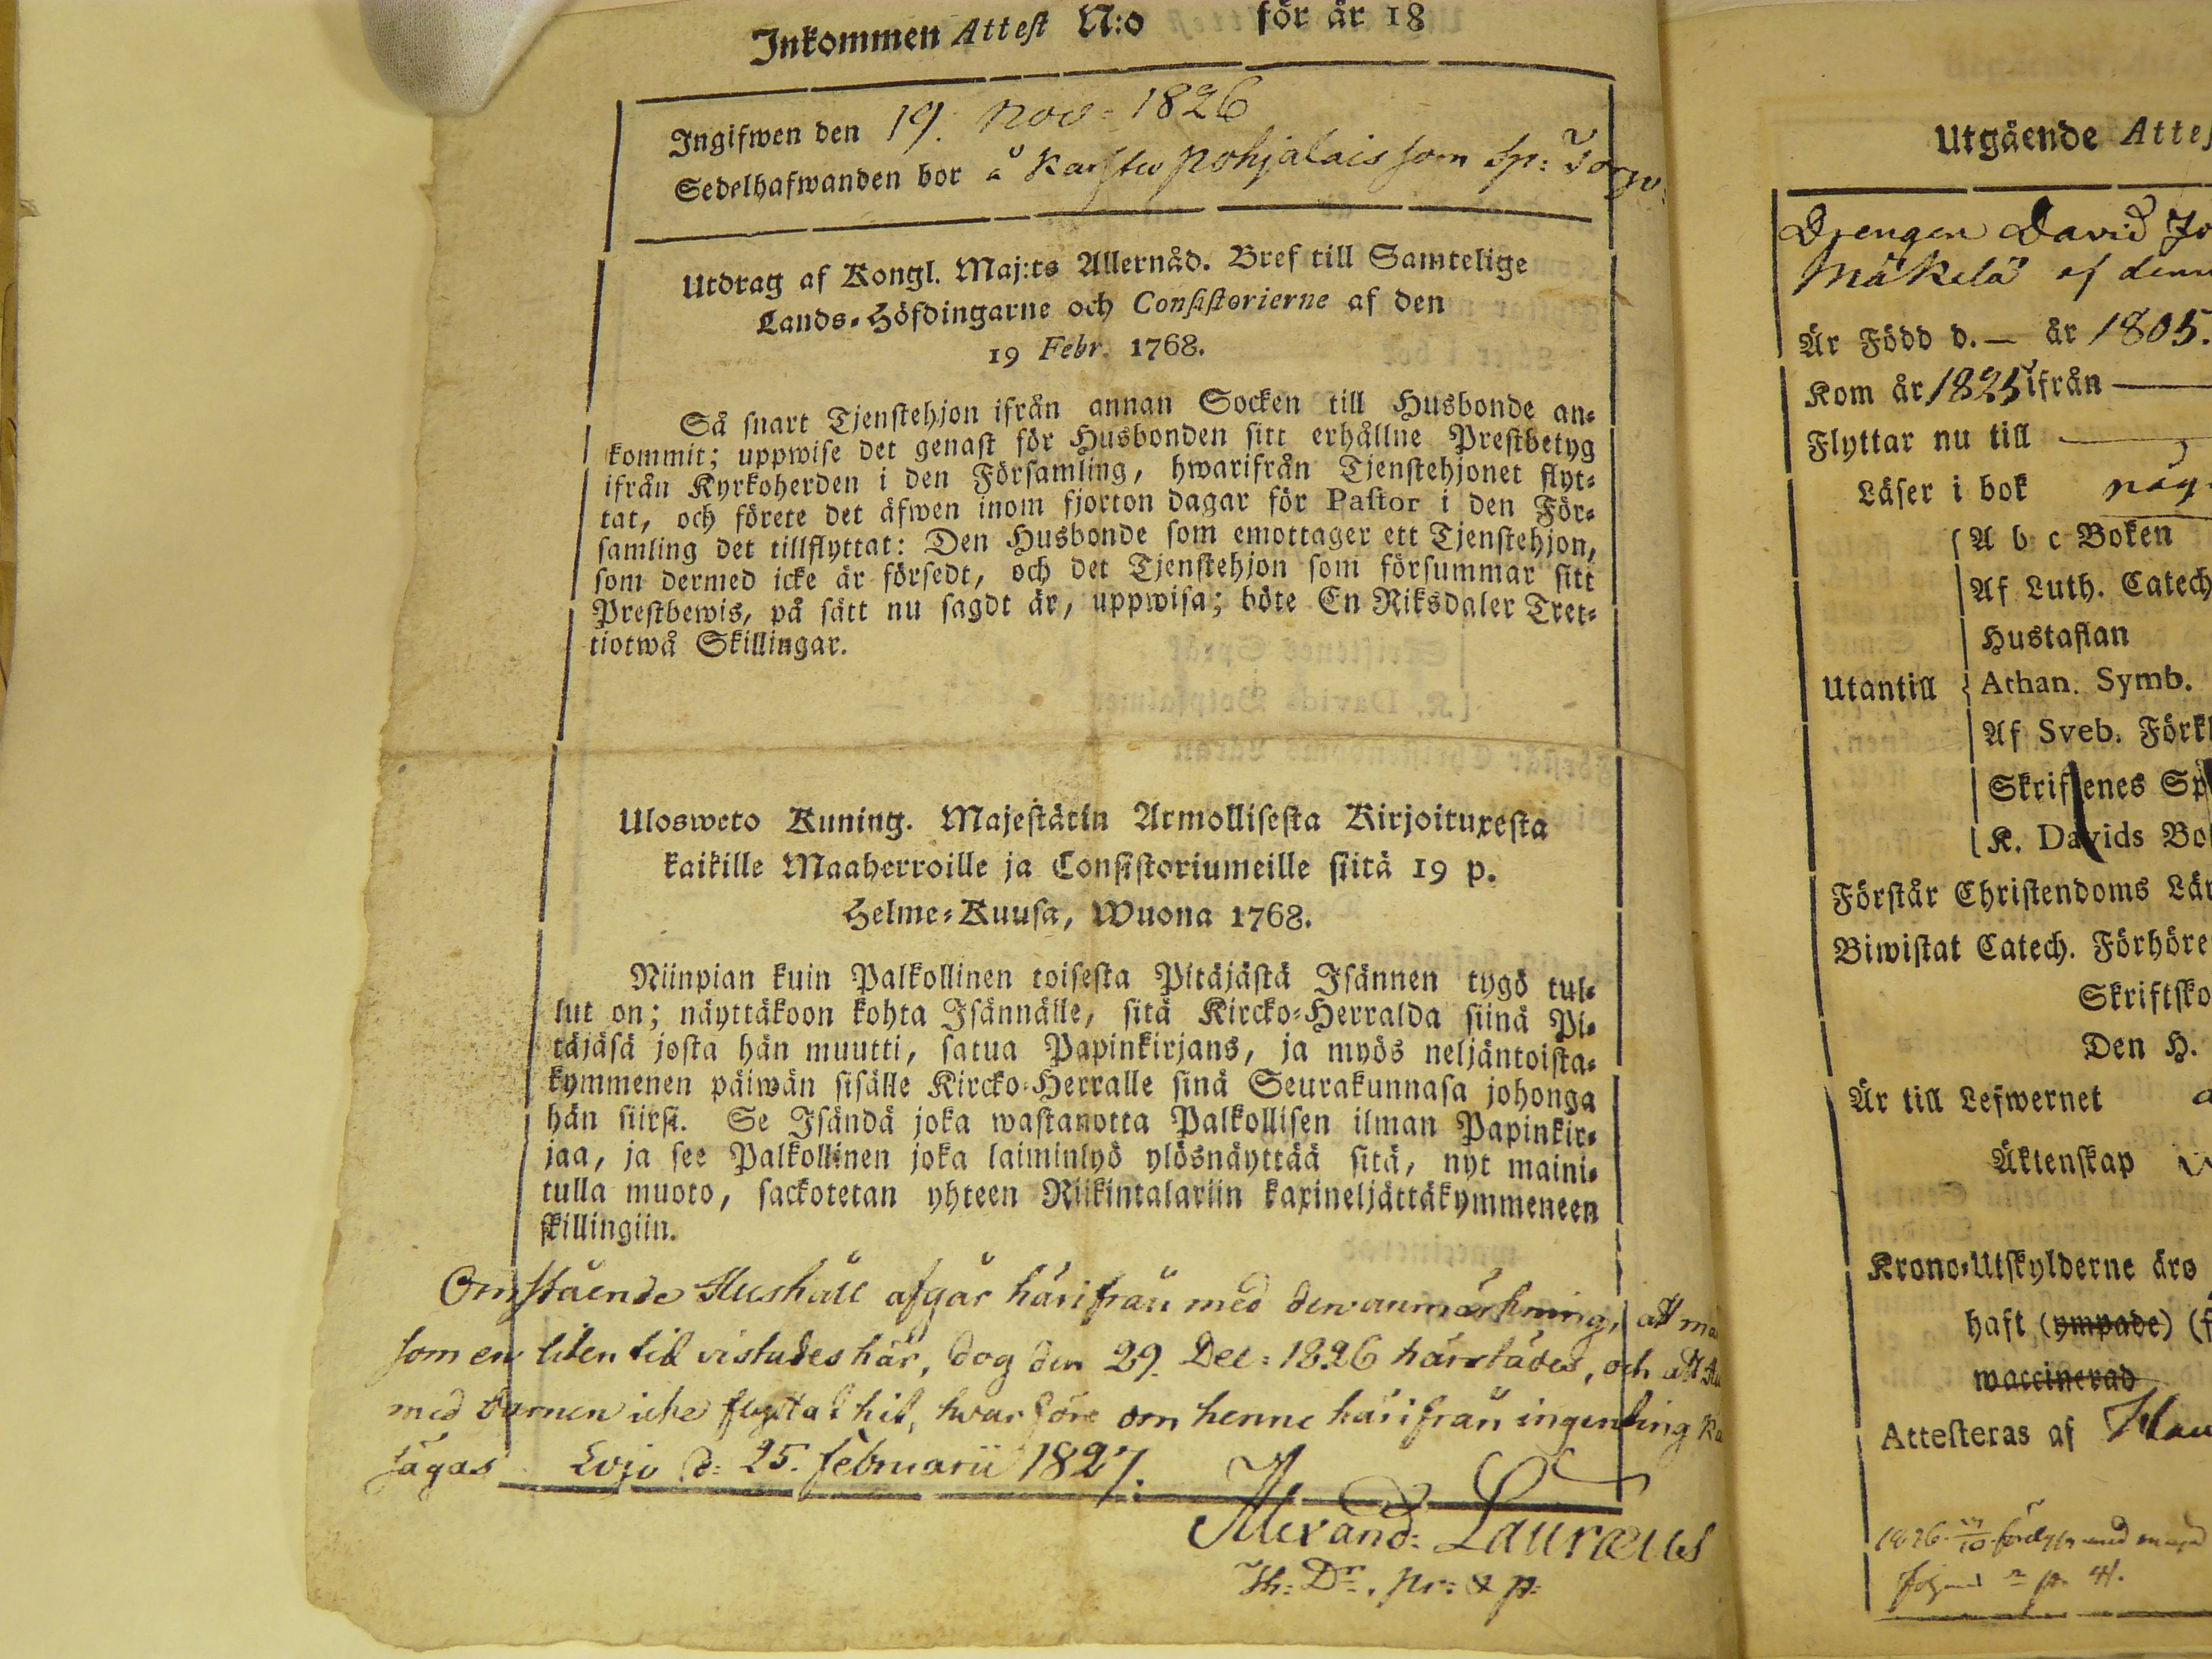 Inkommen Attest N:o för år 18
Ingifwen den 19. Nov: 1826
Sedelhafwanden bor å Karstu pohjalais som sp: Torp
Utdrag af Kongl. Maj:ts Allernåd. Bref till Samtelige
Lands-Höfdingarne och Consistorierne af den
19 Febr. 1768.
Så snart Tjenstehjon ifrån annan Socken till Husbonde an-
kommit; uppwise det genast för Husbonden sitt erhållne Prestbetyg
ifrån Kyrkoherden i den Församling, hwarifrån Tjenstehjonet flyt-
tat, och förete det äfwen inom fjorton dagar för Pastor i den För-
samling det tillflyttat: Den Husbonde som emottager ett Tjenstehjon,
som dermed icke är försedt, och det Tjenstehjon som försummar sitt
Prestbewis, på sätt nu sagdt är, uppwisa; böte En Riksdaler Tret-
tiotwå Skillingar.
Ulosweto Kuning. Majestätin Armollisesta Kirjoituxesta
kaikille Maaherroille ja Consistoriumeille siitä 19 p.
Helme-Kuusa, Wuona 1768.
Niinpian kuin Palkollinen toisesta Pitäjästä Isännen tygö tul-
lut on; näyttäkoon kohta Isännälle, sitä Kircko-Herralda siinä Pi-
täjäsä josta hän muutti, satua Papinkirjans, ja myös neljäntoista-
kymmenen päiwän sisälle Kircko-Herralle sinä Seurakunnasa johonga
hän siirsi. Se Isändä joka wastanotta Palkollisen ilman Papinkir-
jaa, ja see Palkollinen joka laiminlyö ylösnäyttää sitä, nyt maini-
tulla muoto, sackotetan yhteen Riikintalariin kaxineljättäkymmeneen
skillingiin.
Omstående Hushåll afgår härifrån med den anmärkning, att ma
som en liten tid vistades här, dog den 29. Dec: 1826 härstädes, och att
med barnen icke flyttat hit, hvarföre om henne härifrån ingenting
sägas Lojo d: 25. februarii 1827.
Alexand: Lauræus
Th: Dr., pr: & p:
Utgående Attes
Drengen David Jo
Mäkelä af denn
Är Född d. — år 1805.
Kom år 1825 ifrån —
Flyttar nu till —
Läser i bok någ
A b c Boken
Af Luth. Catech
Hustaflan
Utantill Athan. Symb.
Af Sveb. Förkl
Skriftenes Sp
K. Davids Bo
Förstår Christendoms Lär
Biwistat Catech. Förhöre
Skriftsko
Den H.
Är till Lefwernet
Äktenskap
Krono-Utskylderne äro
haft (ympade) (f
waccinerad
Attesteras af